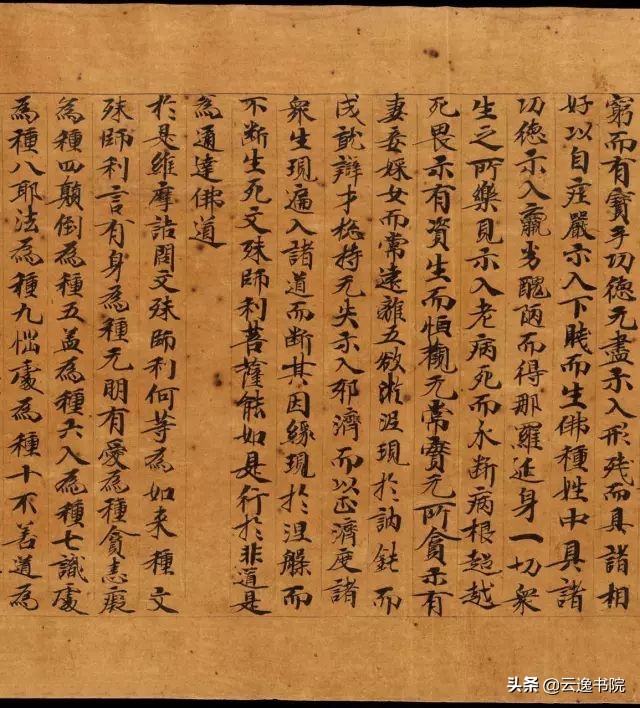 窮而有寶手功德无盡示入形残而具諸相
好以自庄嚴示入下賤而生佛種姓中具諸
功德示入羸劣醜陋而得那羅延身一切衆
生之所樂見示入老病死而永断病根超越
死畏示有資生而恒觀无常實无所貪示有
妻妾婇女而常遠離五欲淤泥現於訥鈍而
成就辯才捴持无失示入邪濟而以正濟度諸
衆生現遍入諸道而断其因縁現於涅槃而
不断生死文殊師利菩薩能如是行於非道是
為通達佛道
於是維摩詰問文殊師利何等為如来種文
殊師利言有身為種无明有愛為種貪恚癡
為種四顛倒為種五盖為種六入為種七識處
為種八耶法為種九惱處為種十不善道為
头条 @云逸书院